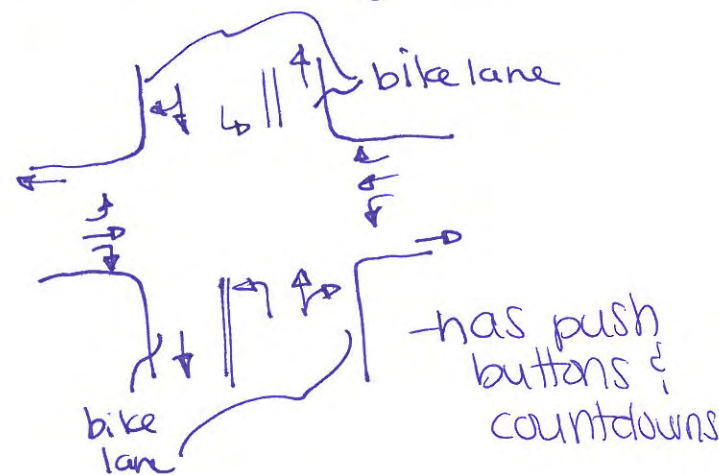 bike lane
-has push
buttons &
countdowns
bike
lane